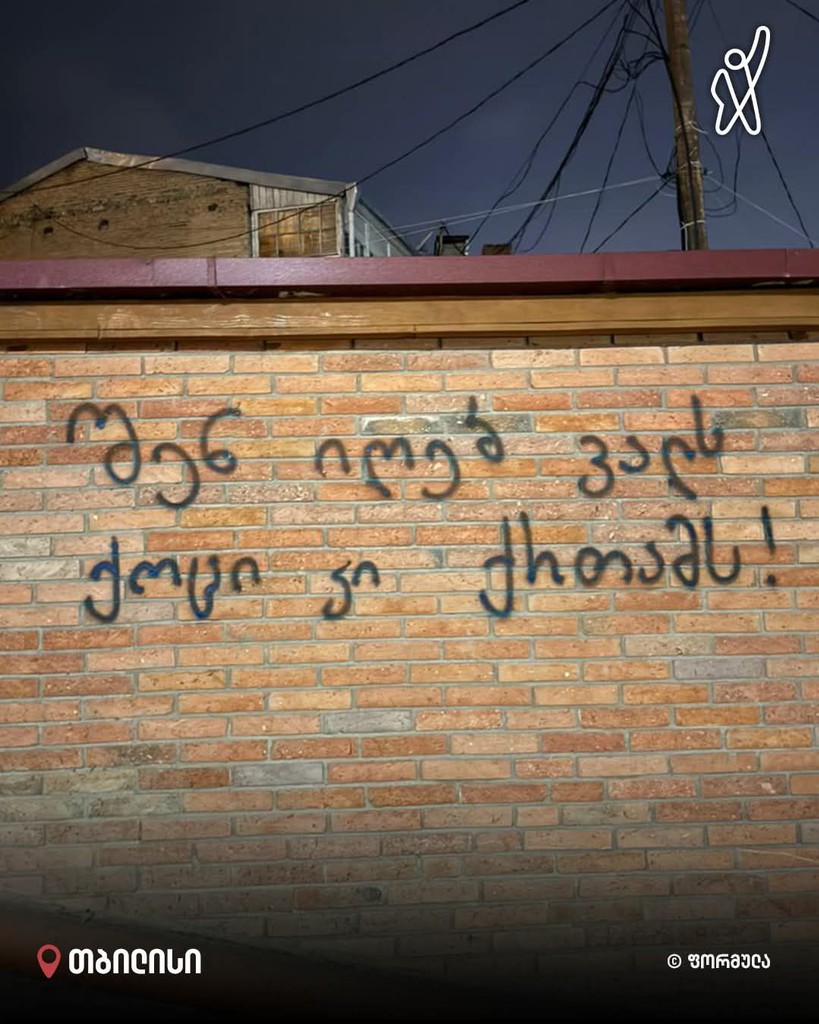 შენ იღებ ვალს
ქოცი კი ქრთამს!
თბილისი
© ფორმულა